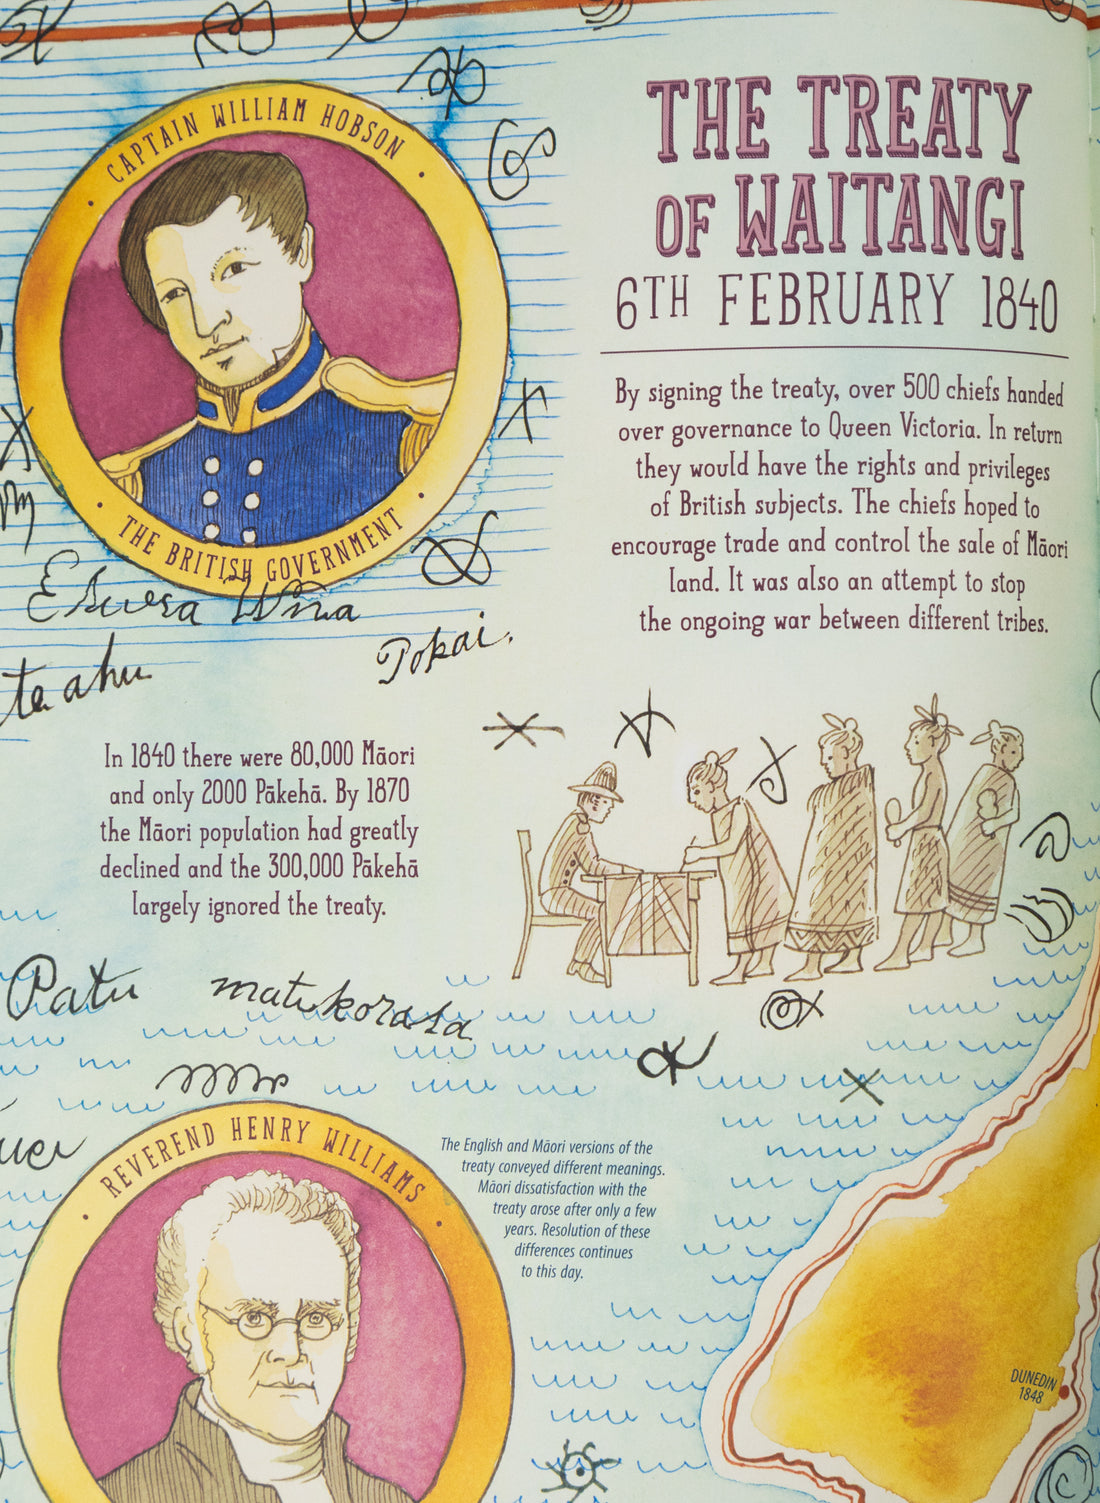 CAPTAIN WILLIAM HOBSON
THE BRITISH GOVERNMENT
THE TREATY
OF WAITANGI
6TH FEBRUARY 1840
By signing the treaty, over 500 chiefs handed
over governance to Queen Victoria. In return
they would have the rights and privileges
of British subjects. The chiefs hoped to
encourage trade and control the sale of Māori
land. It was also an attempt to stop
the ongoing war between different tribes.
Pokai.
te ahu
In 1840 there were 80,000 Māori
and only 2000 Pākehā. By 1870
the Māori population had greatly
declined and the 300,000 Pākehā
largely ignored the treaty.
Patu
REVEREND HENRY WILLIAMS
The English and Māori versions of the
treaty conveyed different meanings.
Māori dissatisfaction with the
treaty arose after only a few
years. Resolution of these
differences continues
to this day.
DUNEDIN
1848